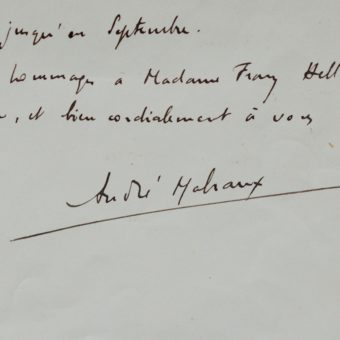 jusqu'en Septembre.
hommages à Madame Franz Hell
, et bien cordialement à vous
André Malraux